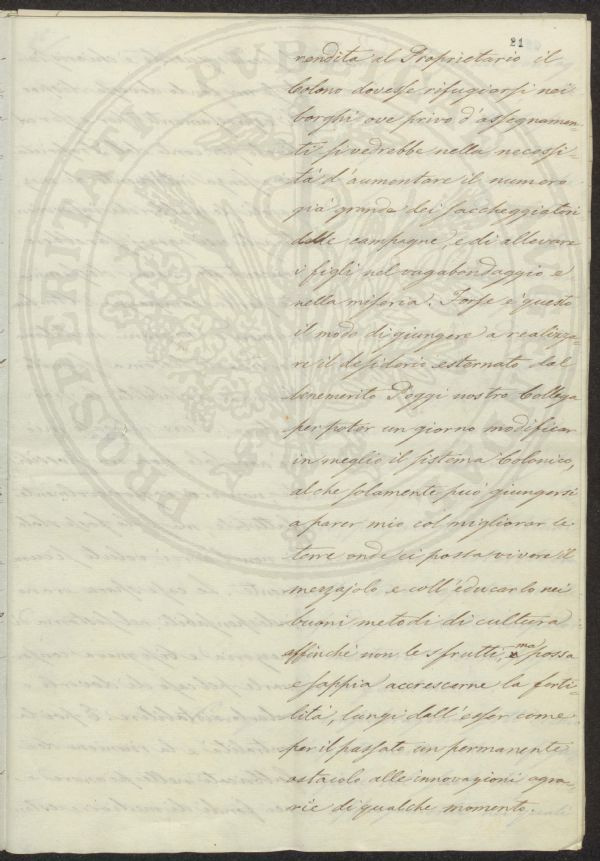 21
rendita al Proprietario il
Colono dovesse rifugiarsi nei
borghi ove privo d'assegnamen-
ti si vedrebbe nella necessi-
tà d'aumentare il numero
già grande dei saccheggiatori
delle campagne e di allevare
i figli nel vagabondaggio e
nella miseria. Forse è questo
il modo di giungere a realizza-
re il desiderio esternato dal
benemerito Poggi nostro Collega
per poter un giorno modificar
in meglio il sistema Colonico,
al che solamente può giungersi
a parer mio col migliorar le
terre onde ci possa vivere il
mezzajolo e coll'educarlo nei
buoni metodi di cultura
affinché non le sfrutti, ma possa
e sappia accrescerne la ferti-
lità, lungi dall'esser come
per il passato un permanente
ostacolo alle innovazioni agra-
rie di qualche momento.
PROSPERITATI PUBLICAE